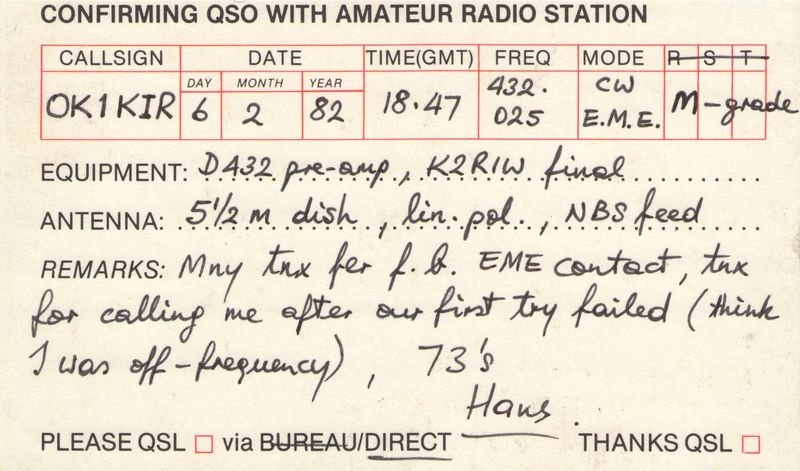 CONFIRMING QSO WITH AMATEUR RADIO STATION
CALLSIGN DATE TIME(GMT) FREQ MODE R S T
DAY MONTH YEAR
OK1KIR 6 2 82 18.47 432.025 CW E.M.E. M-grade
EQUIPMENT: D432 pre-amp, K2RIW final
ANTENNA: 5 1/2 m dish, lin. pol., NBS feed
REMARKS: Mny tnx fer f.b. EME contact, tnx
for calling me after our first try failed (think
I was off-frequency), 73's
Hans.
PLEASE QSL via BUREAU/DIRECT THANKS QSL